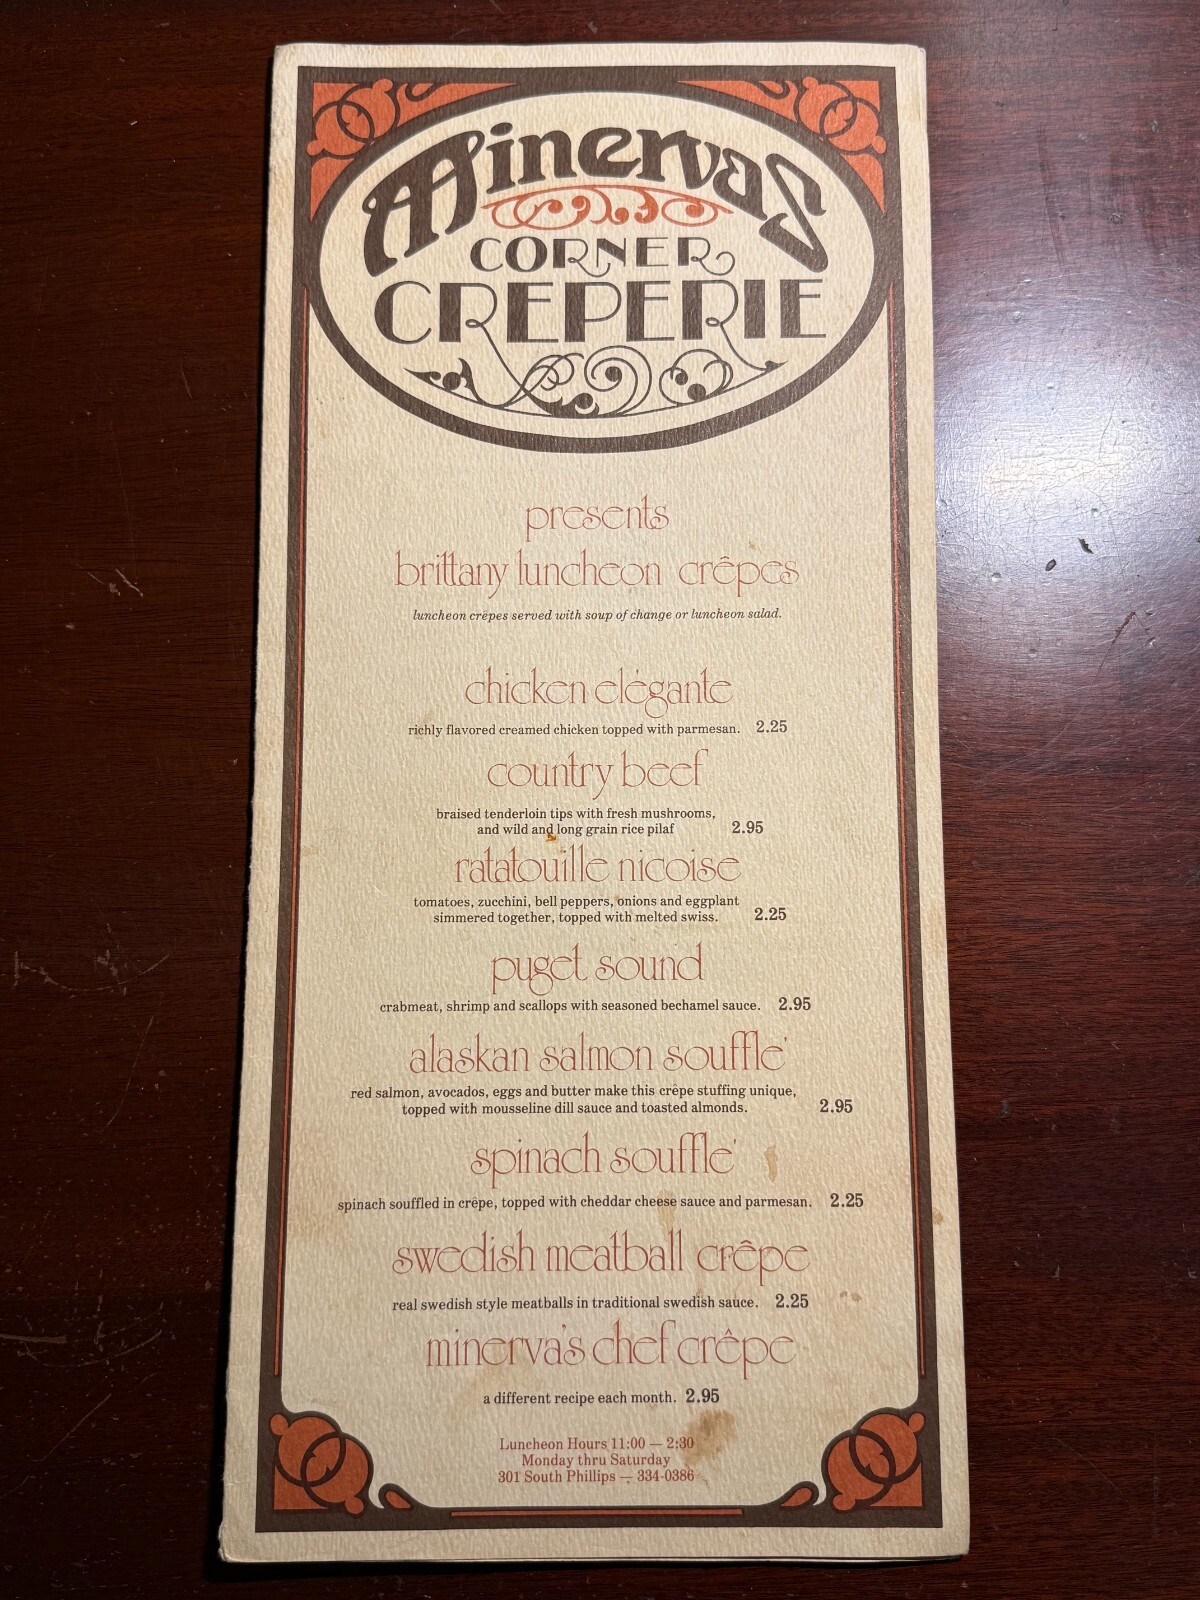 Minervas
CORNER
CREPERIE
presents
brittany luncheon crêpes
luncheon crêpes served with soup of change or luncheon salad.
chicken elégante
richly flavored creamed chicken topped with parmesan. 2.25
country beef
braised tenderloin tips with fresh mushrooms,
and wild and long grain rice pilaf 2.95
ratatouille nicoise
tomatoes, zucchini, bell peppers, onions and eggplant
simmered together, topped with melted swiss. 2.25
puget sound
crabmeat, shrimp and scallops with seasoned bechamel sauce. 2.95
alaskan salmon souffle'
red salmon, avocados, eggs and butter make this crêpe stuffing unique,
topped with mousseline dill sauce and toasted almonds. 2.95
spinach souffle'
spinach souffled in crêpe, topped with cheddar cheese sauce and parmesan. 2.25
swedish meatball crêpe
real swedish style meatballs in traditional swedish sauce. 2.25
minerva's chef crêpe
a different recipe each month. 2.95
Luncheon Hours 11:00 — 2:30
Monday thru Saturday
301 South Phillips — 334-0386